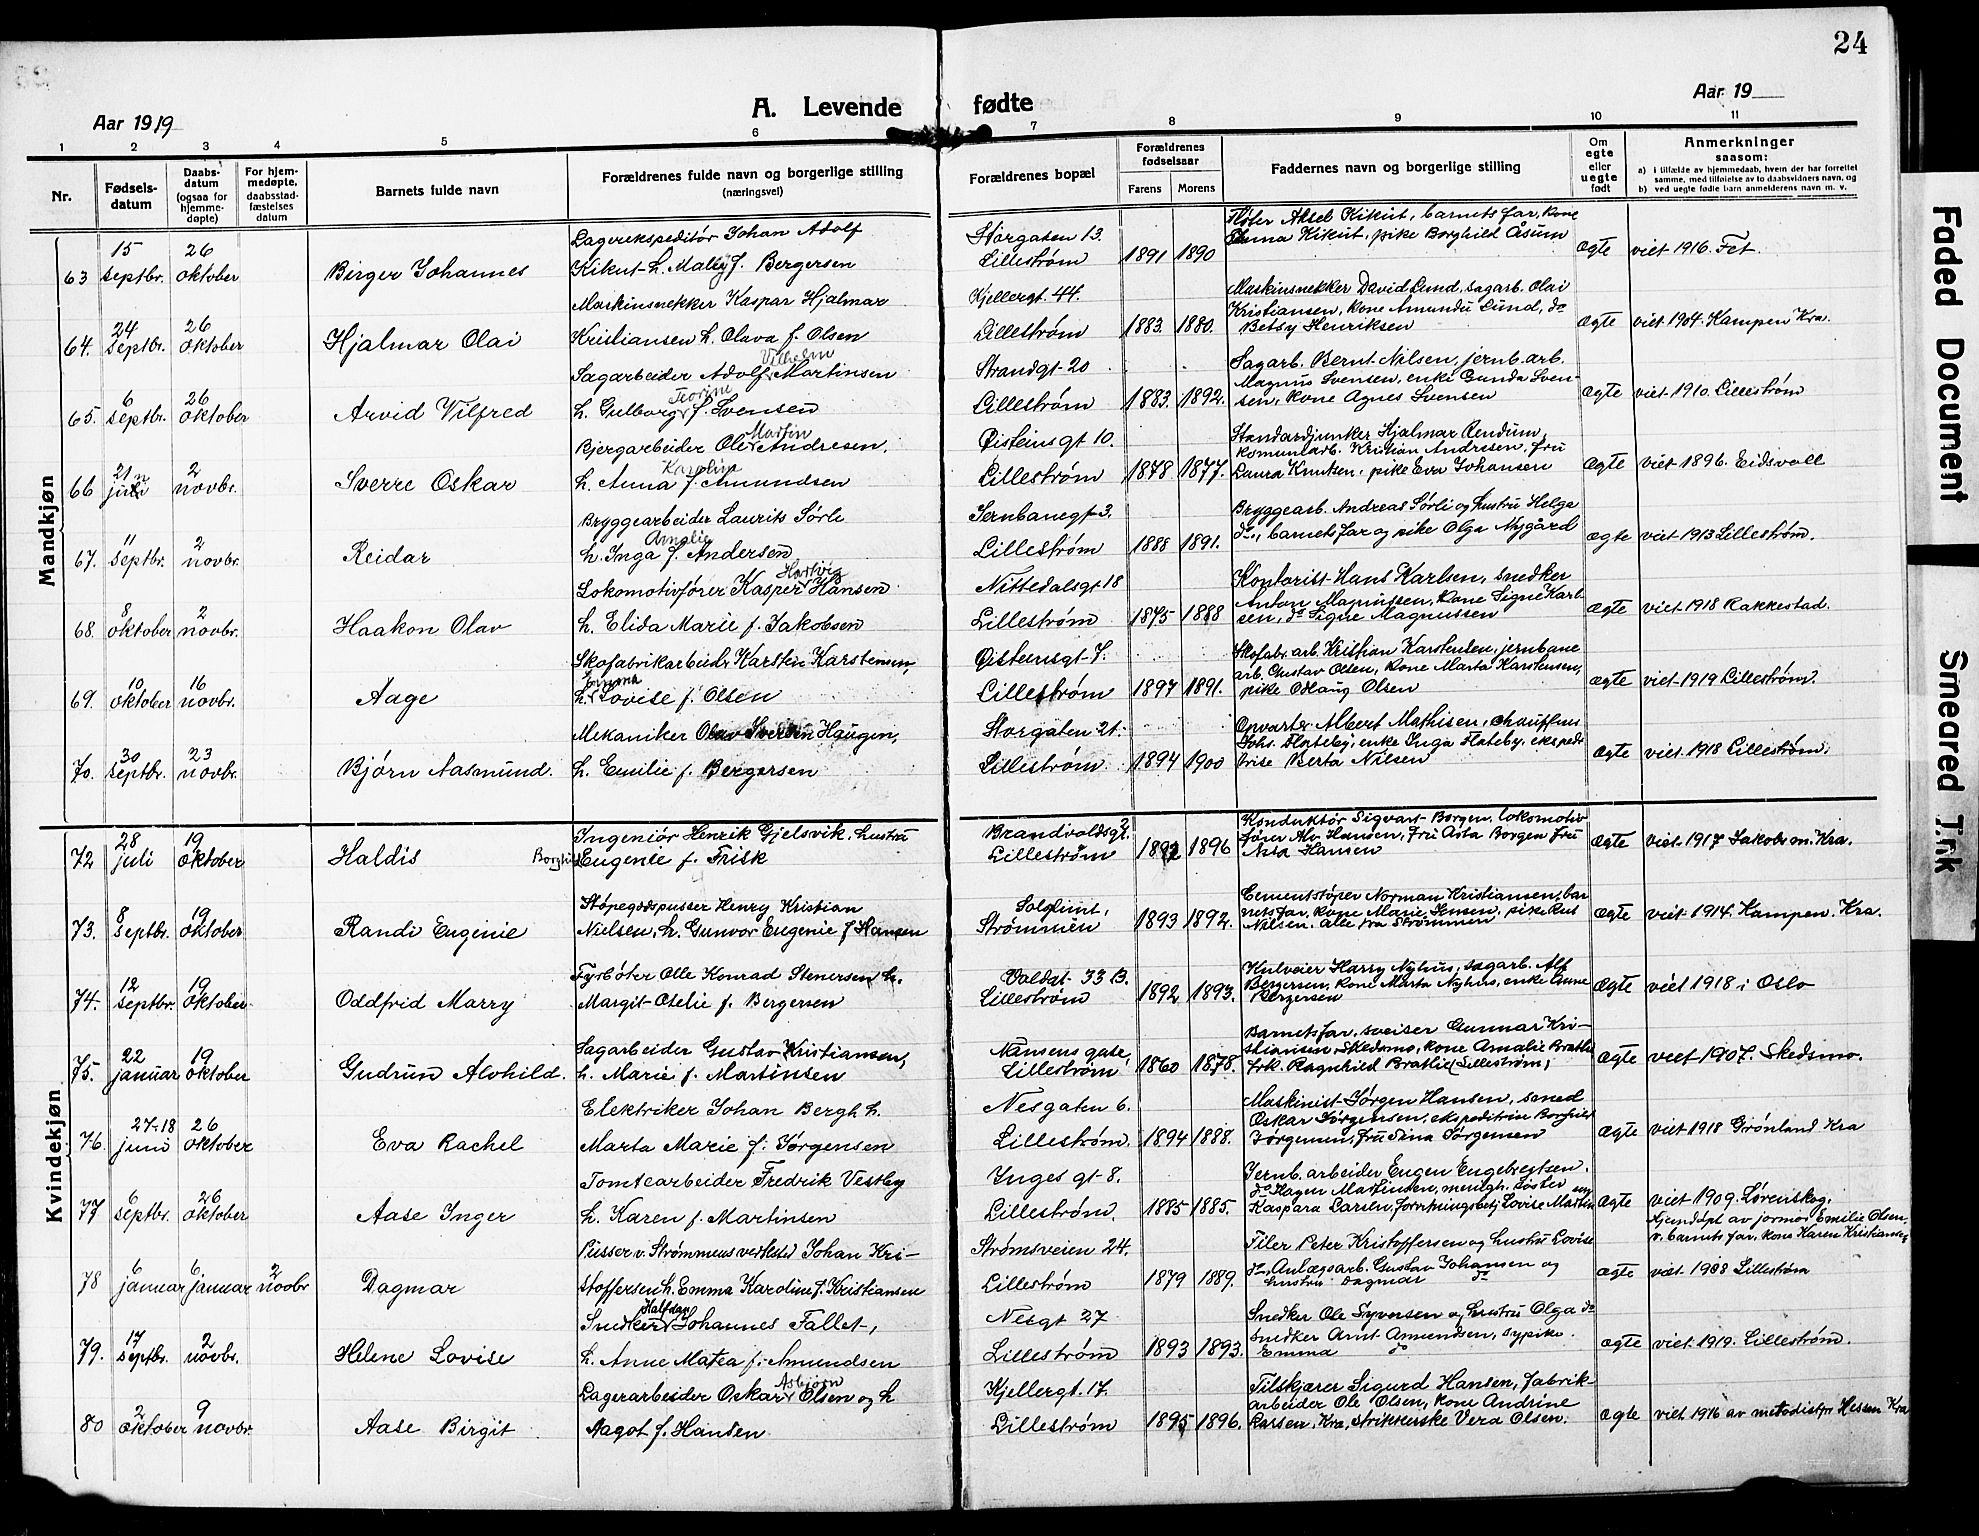 24
A. Levende fødte
Aar 1919
Aar 19
1 2 3 4 5 6 7 8 9 10 11
Nr.
Fødsels-datum
Daabs-datum (ogsaa for hjemme-døpte)
For hjem-medøpte, daabsstad-fæstelses datum
Barnets fulde navn
Forældrenes fulde navn og borgerlige stilling (næringsvei)
Forældrenes bopæl
Forældrenes fødselsaar
Farens Morens
Faddernes navn og borgerlige stilling
Om egte eller uegte født
Anmerkninger saasom:
a) i tilfælde av hjemmedaab, hvem der har forrettet samme, med tilføielse av to daabsvidners navn, og
b) ved uegte fødte barn anmelderens navn m. v.
Mandkjøn
63 15 septbr. 26 oktober Birger Johannes
Lagerekspeditør Johan Adolf
Kikut h. Maley f. Bergersen
Storgaten 13.
Lillestrøm 1891 1890
Fløter Aksel Kikut, barnets far, kone
Anna Kikut, pike Borghild Åsum
ægte viet 1916. Fet.
64. 24 septbr. 26 oktober Hjalmar Olai
Maskinsnekker Kaspar Hjalmar
Kristiansen h. Olava f. Olsen
Kjellergt. 44.
Lillestrøm 1883. 1880.
Maskinsnekker David Lund, sagarb. Olai
Kristiansen, kone Amunda Lund, do
Betsy Henriksen
ægte viet 1904. Kampen Kra.
65. 6 septbr. 26 oktober Arvid Vilfred
Sagarbeider Adolf Vilhelm Martinsen
h. Gulborg Teorine f. Svensen
Strandgt 20
Lillestrøm 1883. 1892.
Sagarb. Bernt Nilsen, jernb. arb.
Magnus Svensen, enke Gunda Sven-
sen, kone Agnes Svensen
ægte viet 1910. Lillestrøm
66 21 juni 2 novbr. Sverre Oskar
Bjergarbeider Ole Martin Andresen,
h. Anna Karoline f. Amundsen
Øisteinsgt 10.
Lillestrøm 1878 1877.
Standardjunker Hjalmar Rendum,
komunalarb. Kristian Andresen, fru
Laura Knutsen, pike Eva Johansen
ægte viet 1896. Eidsvoll
67. 11 septbr. 2 novbr. Reidar
Bryggearbeider Laurits Sørli
h. Inga Amalie f. Andersen
Jernbanegt 3.
Lillestrøm 1888 1891.
Bryggearb. Andreas Sørli og hustru Helga
do, barnets far og pike Olga Nygård
ægte viet 1913 Lillestrøm.
68. 8 oktober 2 novbr. Haakon Olav
Lokomotivfører Kasper Hartvig Hansen
h. Elida Marie f. Jakobsen
Nittedalsgt 18
Lillestrøm 1875 1888
Kontorist Hans Karlsen, snedker
Anton Magnussen, kone Signe Karl-
sen, do Signe Magnussen
ægte viet 1918 Rakkestad.
69. 10 oktober 16 novbr. Aage
Skofabrikarbeider Karsten Karstensen,
h. Emma Lovise f. Olsen
Øisteinsgt 7.
Lillestrøm 1897 1891.
Skofabr. arb. Kristian Karstensen, jernbane
arb. Gustav Olsen, kone Marta Karstensen,
pike Aslaug Olsen
ægte viet 1919 Lillestrøm.
70. 30 septbr. 23 novbr. Bjørn Aasmund.
Mekaniker Olav Iversen Haugen,
h. Emilie f. Bergersen
Storgaten 21.
Lillestrøm. 1894 1900
Opvarter Albert Mathisen, chauffeur
Johs. Flateby, enke Inga Flateby. ekspedi-
trise Berta Nilsen
ægte viet 1918 Lillestrøm.
Kvindekjøn
72 28 juli 19 oktober Haldis Borghild
Ingeniør Henrik Gjelsvik, hustru
Eugenie f. Frisk
Brandvoldsgt. 2
Lillestrøm 1896
Konduktør Sigvart Borgen, lokomotiv
fører Alv Hansen, fru Asta Borgen fru
Hansen
ægte viet 1917 Jakobs m. Kra.
73. 8 septbr. 19 oktober Randi Eugenie
Støpegodspusser Henry Kristian
Nielsen, h. Gunvor Eugenie f Hansen
Solglimt,
Strømmen 1893 1892.
Cementstøper Norman Kristiansen, bar-
nets far, kone Marie Jensen, pike
Nilsen. alle fra Strømmen
ægte viet 1914. Kampen. Kra.
74. 12 septbr. 19 oktober Oddfrid Marry
Fyrbøter Olle Konrad Stenersen h.
Margit Otelie f. Bergersen
Voldgt. 33 B.
Lillestrøm 1892 1893.
Kulveier Harry Nyhus, sagarb. Alf
Bergersen, kone Marta Nyhus, enke Anne
Bergersen
ægte viet 1918 i Oslo
75. 22 januar 19 oktober Gudrun Alvhild.
Sagarbeider Gustav Kristiansen,
h. Marie f. Martinsen
Nansens gate,
Lillestrøm 1860 1878.
Barnets far, sveiser Gunnar Kri-
stiansen, Skedsmo, kone Amalie Bratlie
frk. Ragnhild Bratlie (Lillestrøm)
ægte viet 1907. Skedsmo.
76. 27-18 juni 26 oktober Eva Rachel
Elektriker Johan Bergh h.
Marta Marie f. Jørgensen
Nesgaten 6.
Lillestrøm. 1894 1888.
Maskinist Jørgen Hansen, smed
Oskar Jørgensen, ekspeditrise Borghild
Jørgensen, fru Lina Jørgensen
ægte viet 1918 Grønland Kra
77 6 septbr. 26 oktober Aase Inger
Tomtearbeider Fredrik Vestby
h. Karen f. Martinsen
Inges gt 8.
Lillestrøm. 1885 1885.
Jernb. arbeider Eugen Engebretsen.
do Hagen Martinsen, menigh. søster
Kaspara Larsen, forretningsbetj Lovise Martin
ægte viet 1909. Lørenskog.
78 6 januar 6 januar 2 novbr Dagmar
Pusser v. Strømmens verksted Johan Kri-
stoffersen h. Emma Karoline f. Kristiansen
Strømsveien 24.
Lillestrøm 1879 1889.
Filer Peter Kristoffersen og hustru Lovise
do, Anlægsarb. Gustav Johansen og
hustru Dagmar do
ægte viet 1908 Lillestrøm
Hjemdøpt av jormor Emilie Olsen,
v. barnets far, kone Karen Kristiansen
79. 17 septbr. 2 novbr. Helene Lovise
Snedker Halfdan Johannes Fallet,
h. Anne Matea f. Amundsen
Nesgt 27
Lillestrøm 1893 1893.
Snedker Ole Syversen og hustru Olga do
snedker Arnt Amundsen, sypike.
Emma do
ægte viet 1919. Lillestrøm.
80 2 oktober 9 novbr. Aase Birgit
Lagerarbeider Oskar Asbjørn Olsen og h
Aagot f. Hansen
Kjellergt. 17.
Lillestrøm 1895 1896.
Tilskjærer Sigurd Hansen, fabrik-
arbeider Ole Olsen, kone Andrine
Larsen, Kra, strikkerske Vera Olsen.
ægte viet 1916 av metodistpr Hessen Kra
Faded Document
Smeared Ink